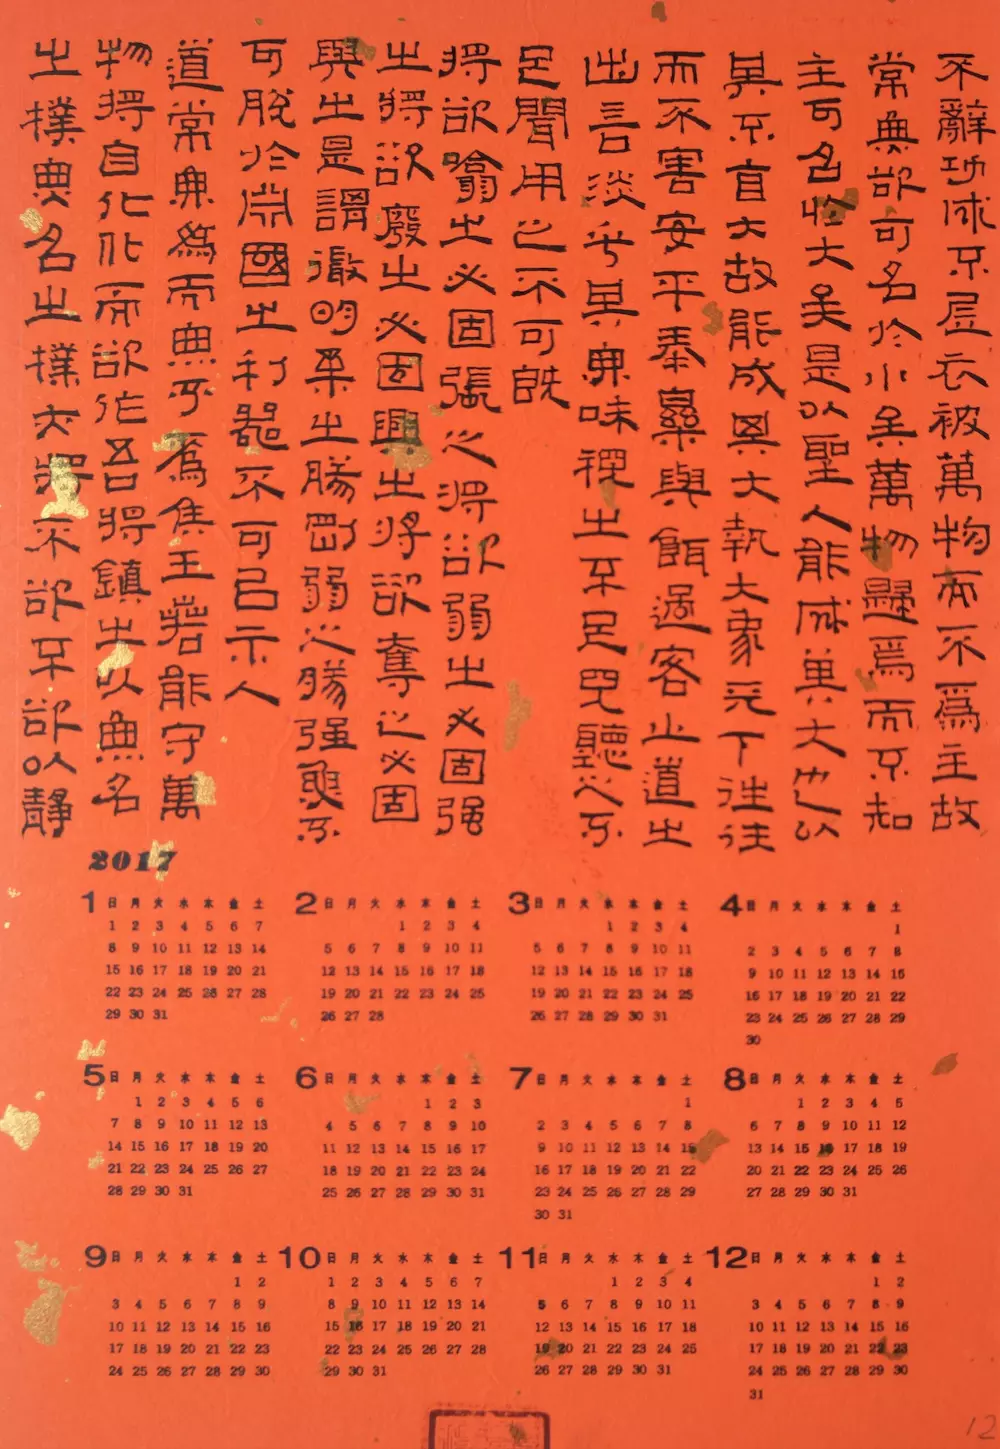 不辭功成不居衣被萬物而不爲主故
常無欲可名於小矣萬物歸焉而不知
主可名於大矣是以聖人能成其大也以
其不自大故能成其大執大象天下往往
而不害安平泰樂與餌過客止道之
出言淡乎其無味視之不足見聽之不
足聞用之不可既
將欲噏之必固張之將欲弱之必固强
之將欲廢之必固興之將欲奪之必固
興之是謂微明柔之勝剛弱之勝强魚不
可脫於淵國之利器不可以示人
道常無爲而無不爲侯王若能守萬
物將自化化而欲作吾將鎮之以無名
之樸無名之樸亦將不欲不欲以靜
2017
1 日 月 火 水 木 金 土
1 2 3 4 5 6 7
8 9 10 11 12 13 14
15 16 17 18 19 20 21
22 23 24 25 26 27 28
29 30 31
2 日 月 火 水 木 金 土
1 2 3 4
5 6 7 8 9 10 11
12 13 14 15 16 17 18
19 20 21 22 23 24 25
26 27 28
3 日 月 火 水 木 金 土
1 2 3 4
5 6 7 8 9 10 11
12 13 14 15 16 17 18
19 20 21 22 23 24 25
26 27 28 29 30 31
4 日 月 火 水 木 金 土
1
2 3 4 5 6 7 8
9 10 11 12 13 14 15
16 17 18 19 20 21 22
23 24 25 26 27 28 29
30
5 日 月 火 水 木 金 土
1 2 3 4 5 6
7 8 9 10 11 12 13
14 15 16 17 18 19 20
21 22 23 24 25 26 27
28 29 30 31
6 日 月 火 水 木 金 土
1 2 3
4 5 6 7 8 9 10
11 12 13 14 15 16 17
18 19 20 21 22 23 24
25 26 27 28 29 30 31
7 日 月 火 水 木 金 土
1
2 3 4 5 6 7 8
9 10 11 12 13 14 15
16 17 18 19 20 21 22
23 24 25 26 27 28 29
30 31
8 日 月 火 水 木 金 土
1 2 3 4 5
6 7 8 9 10 11 12
13 14 15 16 17 18 19
20 21 22 23 24 25 26
27 28 29 30 31
9 日 月 火 水 木 金 土
1 2
3 4 5 6 7 8 9
10 11 12 13 14 15 16
17 18 19 20 21 22 23
24 25 26 27 28 29 30
10 日 月 火 水 木 金 土
1 2 3 4 5 6 7
8 9 10 11 12 13 14
15 16 17 18 19 20 21
22 23 24 25 26 27 28
29 30 31
11 日 月 火 水 木 金 土
1 2 3 4
5 6 7 8 9 10 11
12 13 14 15 16 17 18
19 20 21 22 23 24 25
26 27 28 29 30 31
12 日 月 火 水 木 金 土
1 2
3 4 5 6 7 8 9
10 11 12 13 14 15 16
17 18 19 20 21 22 23
24 25 26 27 28 29 30
31
12